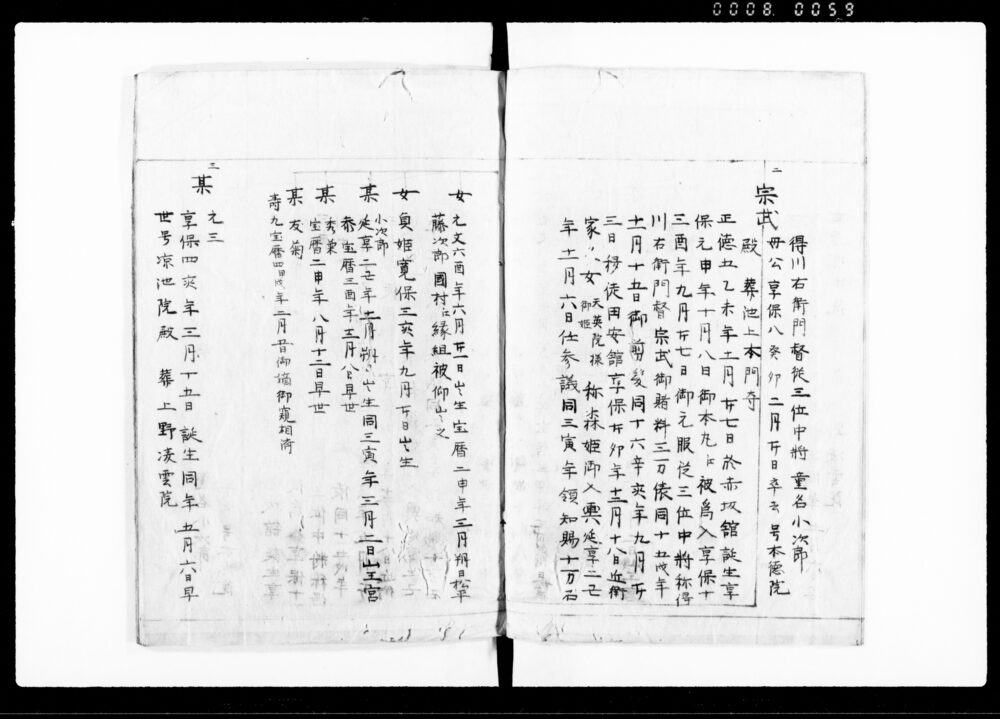 0008 0059
二
宗武
得川右衛門督従三位中将 童名小次郎
母公享保八癸卯二月廿日卒去号本徳院
殿 葬池上本門寺
正徳五乙未年十二月廿七日於赤坂舘誕生享
保元申年十月八日御本丸江被為入享保十
三酉年九月廿七日御元服従三位中将称得
川右衛門督宗武御賭料三万俵同十五戌年
十一月十五日御剪髪同十六辛亥年九月廿
三日移徒田安舘享保廿卯年十二月十八日近衛
家久女 天英院様御姫 称森姫御入輿延享二乙
年十一月六日任参議同三寅年領知賜十万石
女 元文六酉年六月廿一日出生宝暦二申年三月朔日松平
藤次郎國村江縁組被仰出之
女 貞姫寛保三亥年九月廿日出生
某 小次郎
延享二乙年十一月朔日出生同三寅年三月二日山王宮
参宝暦三酉年三月八日早世
某 宝暦二申年八月十二日早世
某 友菊
寿九宝暦四甲戌年二月 御嫡御窺相済
三
某 元三
享保四亥年三月十五日誕生同年五月六日早
世号凉池院殿 葬上野凌雲院